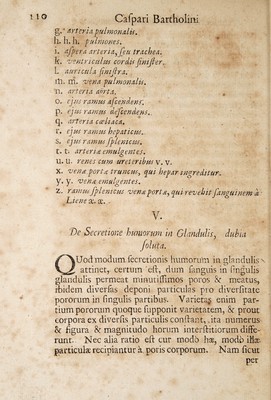 110 Caspari Bartholini
g. arteria pulmonalis.
h. h. h. pulmones.
i. aspera arteria, seu trachea.
k. ventriculus cordis sinister.
l. auricula sinistra.
m. m. vena pulmonalis.
n. arteria aorta.
o. ejus ramus ascendens.
p. ejus ramus descendens.
q. arteria cœliaca.
r. ejus ramus hepaticus.
s. ejus ramus splenicus.
t. t. arteriæ emulgentes.
u. u. renes cum ureteribus v. v.
x. venæ portæ truncus, qui hepar ingreditur.
y. y. venæ emulgentes.
z. ramus splenicus venæ portæ, qui revehit sanguinem à
Liene
V.
De Secretione humorum in Glandulis, dubia
soluta.
QUod modum secretionis humorum in glandulis
attinet, certum est, dum sanguis in singulis
glandulis permeat minutissimos poros & meatus,
ibidem diversas deponi particulas pro diversitate
pororum in singulis partibus. Varietas enim par-
tium pororum quoque supponit varietatem, & prout
corpora ex diversis particulis constant, ita numerus
& figura & magnitudo horum interstitiorum diffe-
runt. Nec alia ratio est cur modò hæ, modò illæ
particulæ recipiantur à poris corporum. Nam sicut
per